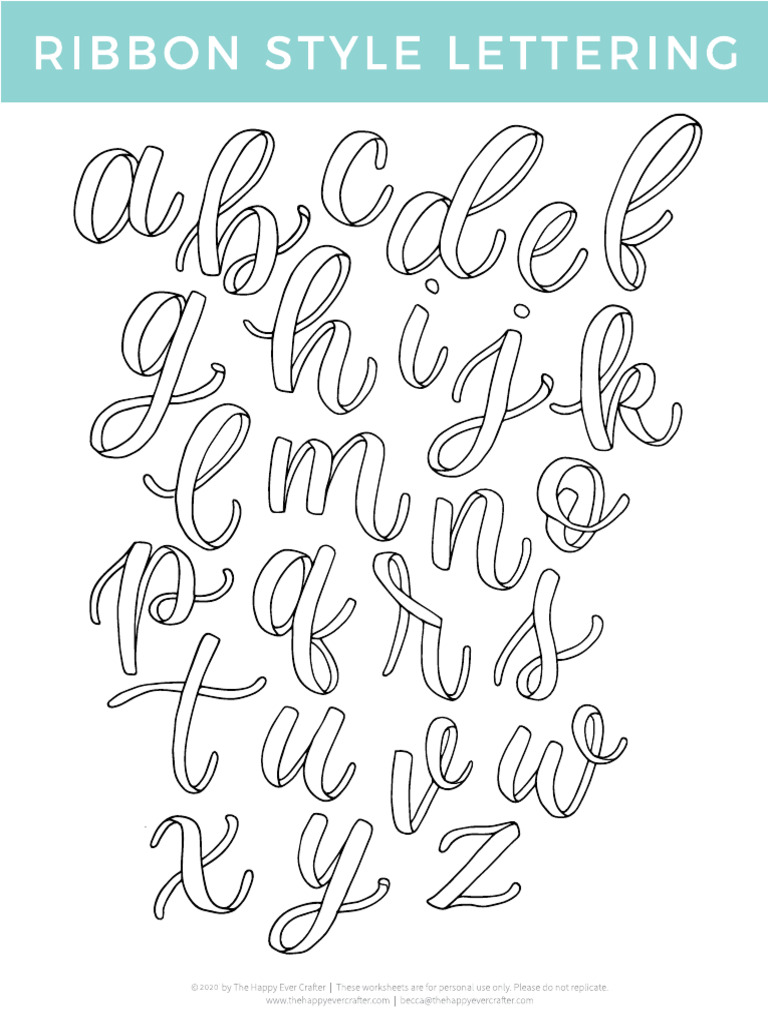 RIBBON STYLE LETTERING
a b c d e f
g h i j k
l m n o
p q r s
t u v w
x y z
© 2020 by The Happy Ever Crafter | These worksheets are for personal use only. Please do not replicate.
www.thehappyevercrafter.com | becca@thehappyevercrafter.com